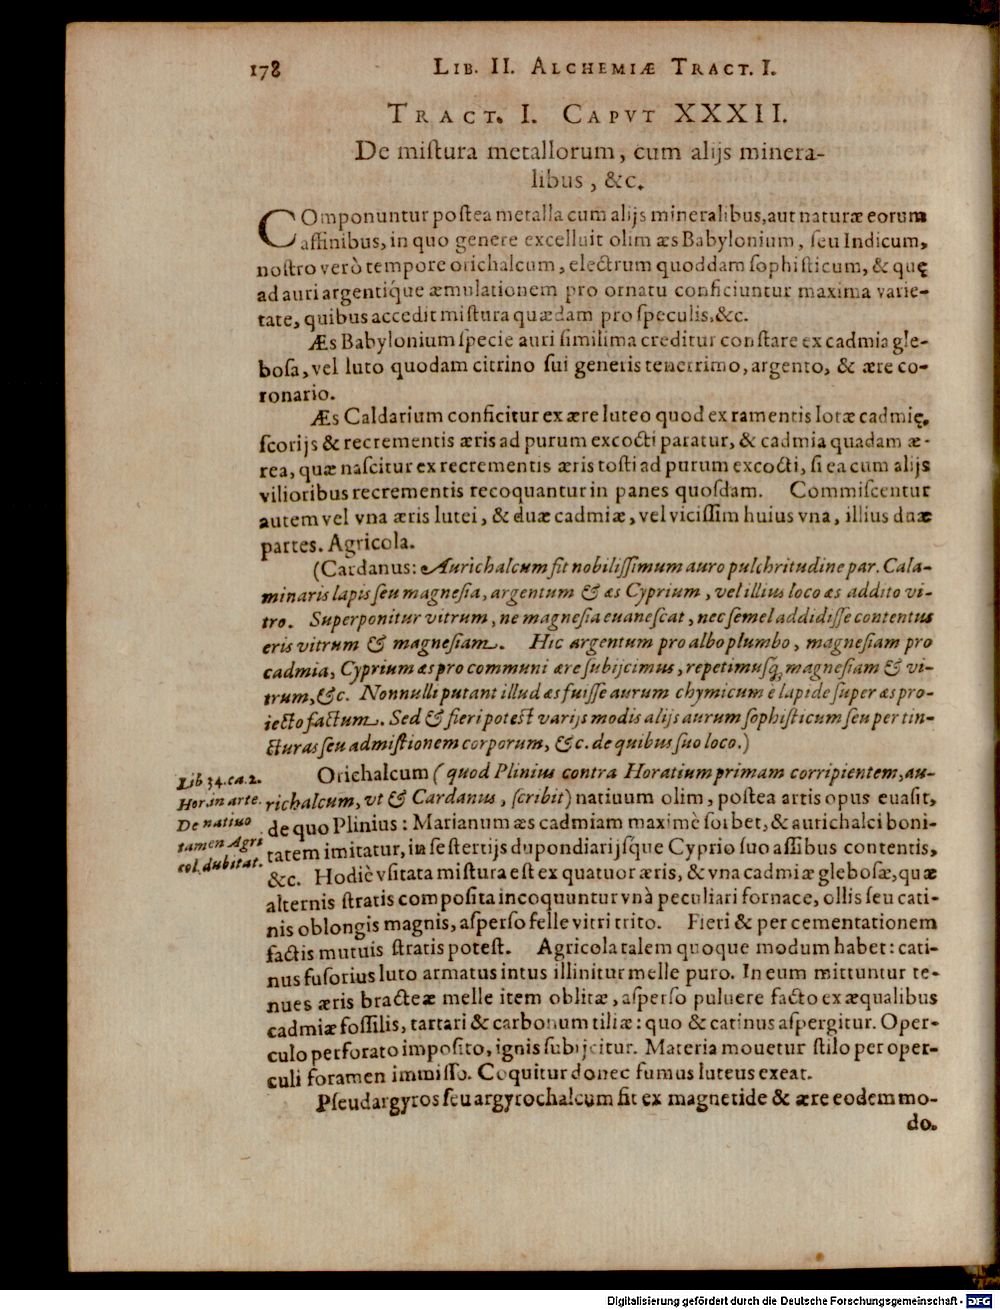 178 LIB. II. ALCHEMIÆ TRACT. I.
TRACT. I. CAPVT XXXII.
De miſtura metallorum, cum alijs minera-
libus, &c.
COmponuntur poſtea metalla cum alijs mineralibus, aut naturæ eorum
affinibus, in quo genere excelluit olim æs Babylonium, ſeu Indicum,
noſtro verò tempore orichalcum, electrum quoddam ſophiſticum, & quę
ad auri argentíque æmulationem pro ornatu conficiuntur maxima varie-
tate, quibus accedit miſtura quædam pro ſpeculis, &c.
Æs Babylonium ſpecie auri ſimilima creditur conſtare ex cadmia gle-
boſa, vel luto quodam citrino ſui generis tenerrimo, argento, & ære co-
ronario.
Æs Caldarium conficitur ex ære luteo quod ex ramentis lotæ cadmię,
ſcorijs & recrementis æris ad purum excocti paratur, & cadmia quadam æ-
rea, quæ naſcitur ex recrementis æris toſti ad purum excocti, ſi ea cum alijs
vilioribus recrementis recoquantur in panes quoſdam. Commiſcentur
autem vel vna æris lutei, & duæ cadmiæ, vel viciſſim huius vna, illius duæ
partes. Agricola.
(Cardanus: Aurichalcum fit nobiliſſimum auro pulchritudine par. Cala-
minaris lapis ſeu magneſia, argentum & æs Cyprium, vel illius loco æs addito vi-
tro. Superponitur vitrum, ne magneſia euaneſcat, nec ſemel addidiſſe contentus
eris vitrum & magneſiam. Hic argentum pro albo plumbo, magneſiam pro
cadmia, Cyprium æs pro communi ære ſubijcimus, repetimuſq; magneſiam & vi-
trum, &c. Nonnulli putant illud æs fuiſſe aurum chymicum è lapide ſuper æs pro-
iecto factum. Sed & fieri poteſt varijs modis alijs aurum ſophiſticum ſeu per tin-
cturas ſeu admiſtionem corporum, &c. de quibus ſuo loco.)
Lib 34. ca. 2.
Hor. in arte.
De natiuo
tamen Agri
col. dubitat.
Orichalcum (quod Plinius contra Horatium primam corripientem, au-
richalcum, vt & Cardanus, ſcribit) natiuum olim, poſtea artis opus euaſit,
de quo Plinius: Marianum æs cadmiam maximè ſorbet, & aurichalci boni-
tatem imitatur, in ſeſtertijs dupondiarijſque Cyprio ſuo aſſibus contentis,
&c. Hodiè vſitata miſtura eſt ex quatuor æris, & vna cadmiæ gleboſæ, quæ
alternis ſtratis compoſita incoquuntur vnà peculiari fornace, ollis ſeu cati-
nis oblongis magnis, aſperſo felle vitri trito. Fieri & per cementationem
factis mutuis ſtratis poteſt. Agricola talem quoque modum habet: cati-
nus fuſorius luto armatus intus illinitur melle puro. In eum mittuntur te-
nues æris bracteæ melle item oblitæ, aſperſo puluere facto ex æqualibus
cadmiæ foſſilis, tartari & carbonum tiliæ: quo & catinus aſpergitur. Oper-
culo perforato impoſito, ignis ſubijcitur. Materia mouetur ſtilo per oper-
culi foramen immiſſo. Coquitur donec fumus luteus exeat.
Pſeudargyros ſeu argyrochalcum fit ex magnetide & ære eodem mo-
do.
Digitalisierung gefördert durch die Deutsche Forschungsgemeinschaft - DFG